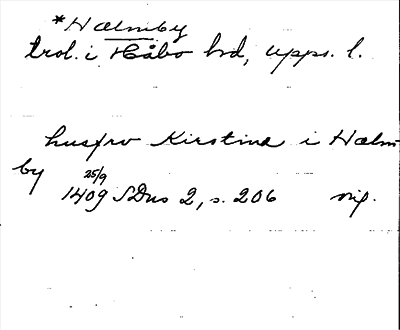 *Halmby
trol. i Håbo hd, Upps. l.
husfrv Kirstina i Halm
by
25/9
1409 SDns 2, s. 206